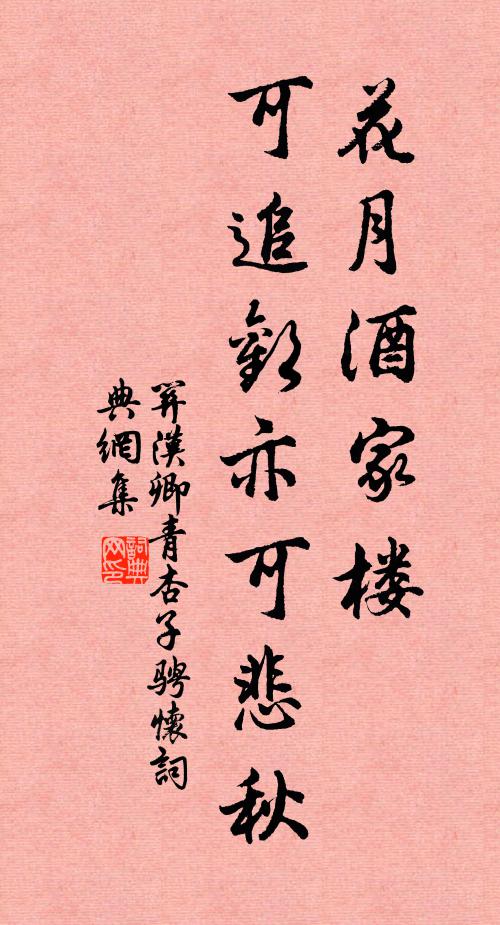 花月酒家楼
可追歡亦可悲秋
關漢卿青杏子骋懷詞
典網集
詞典
网印